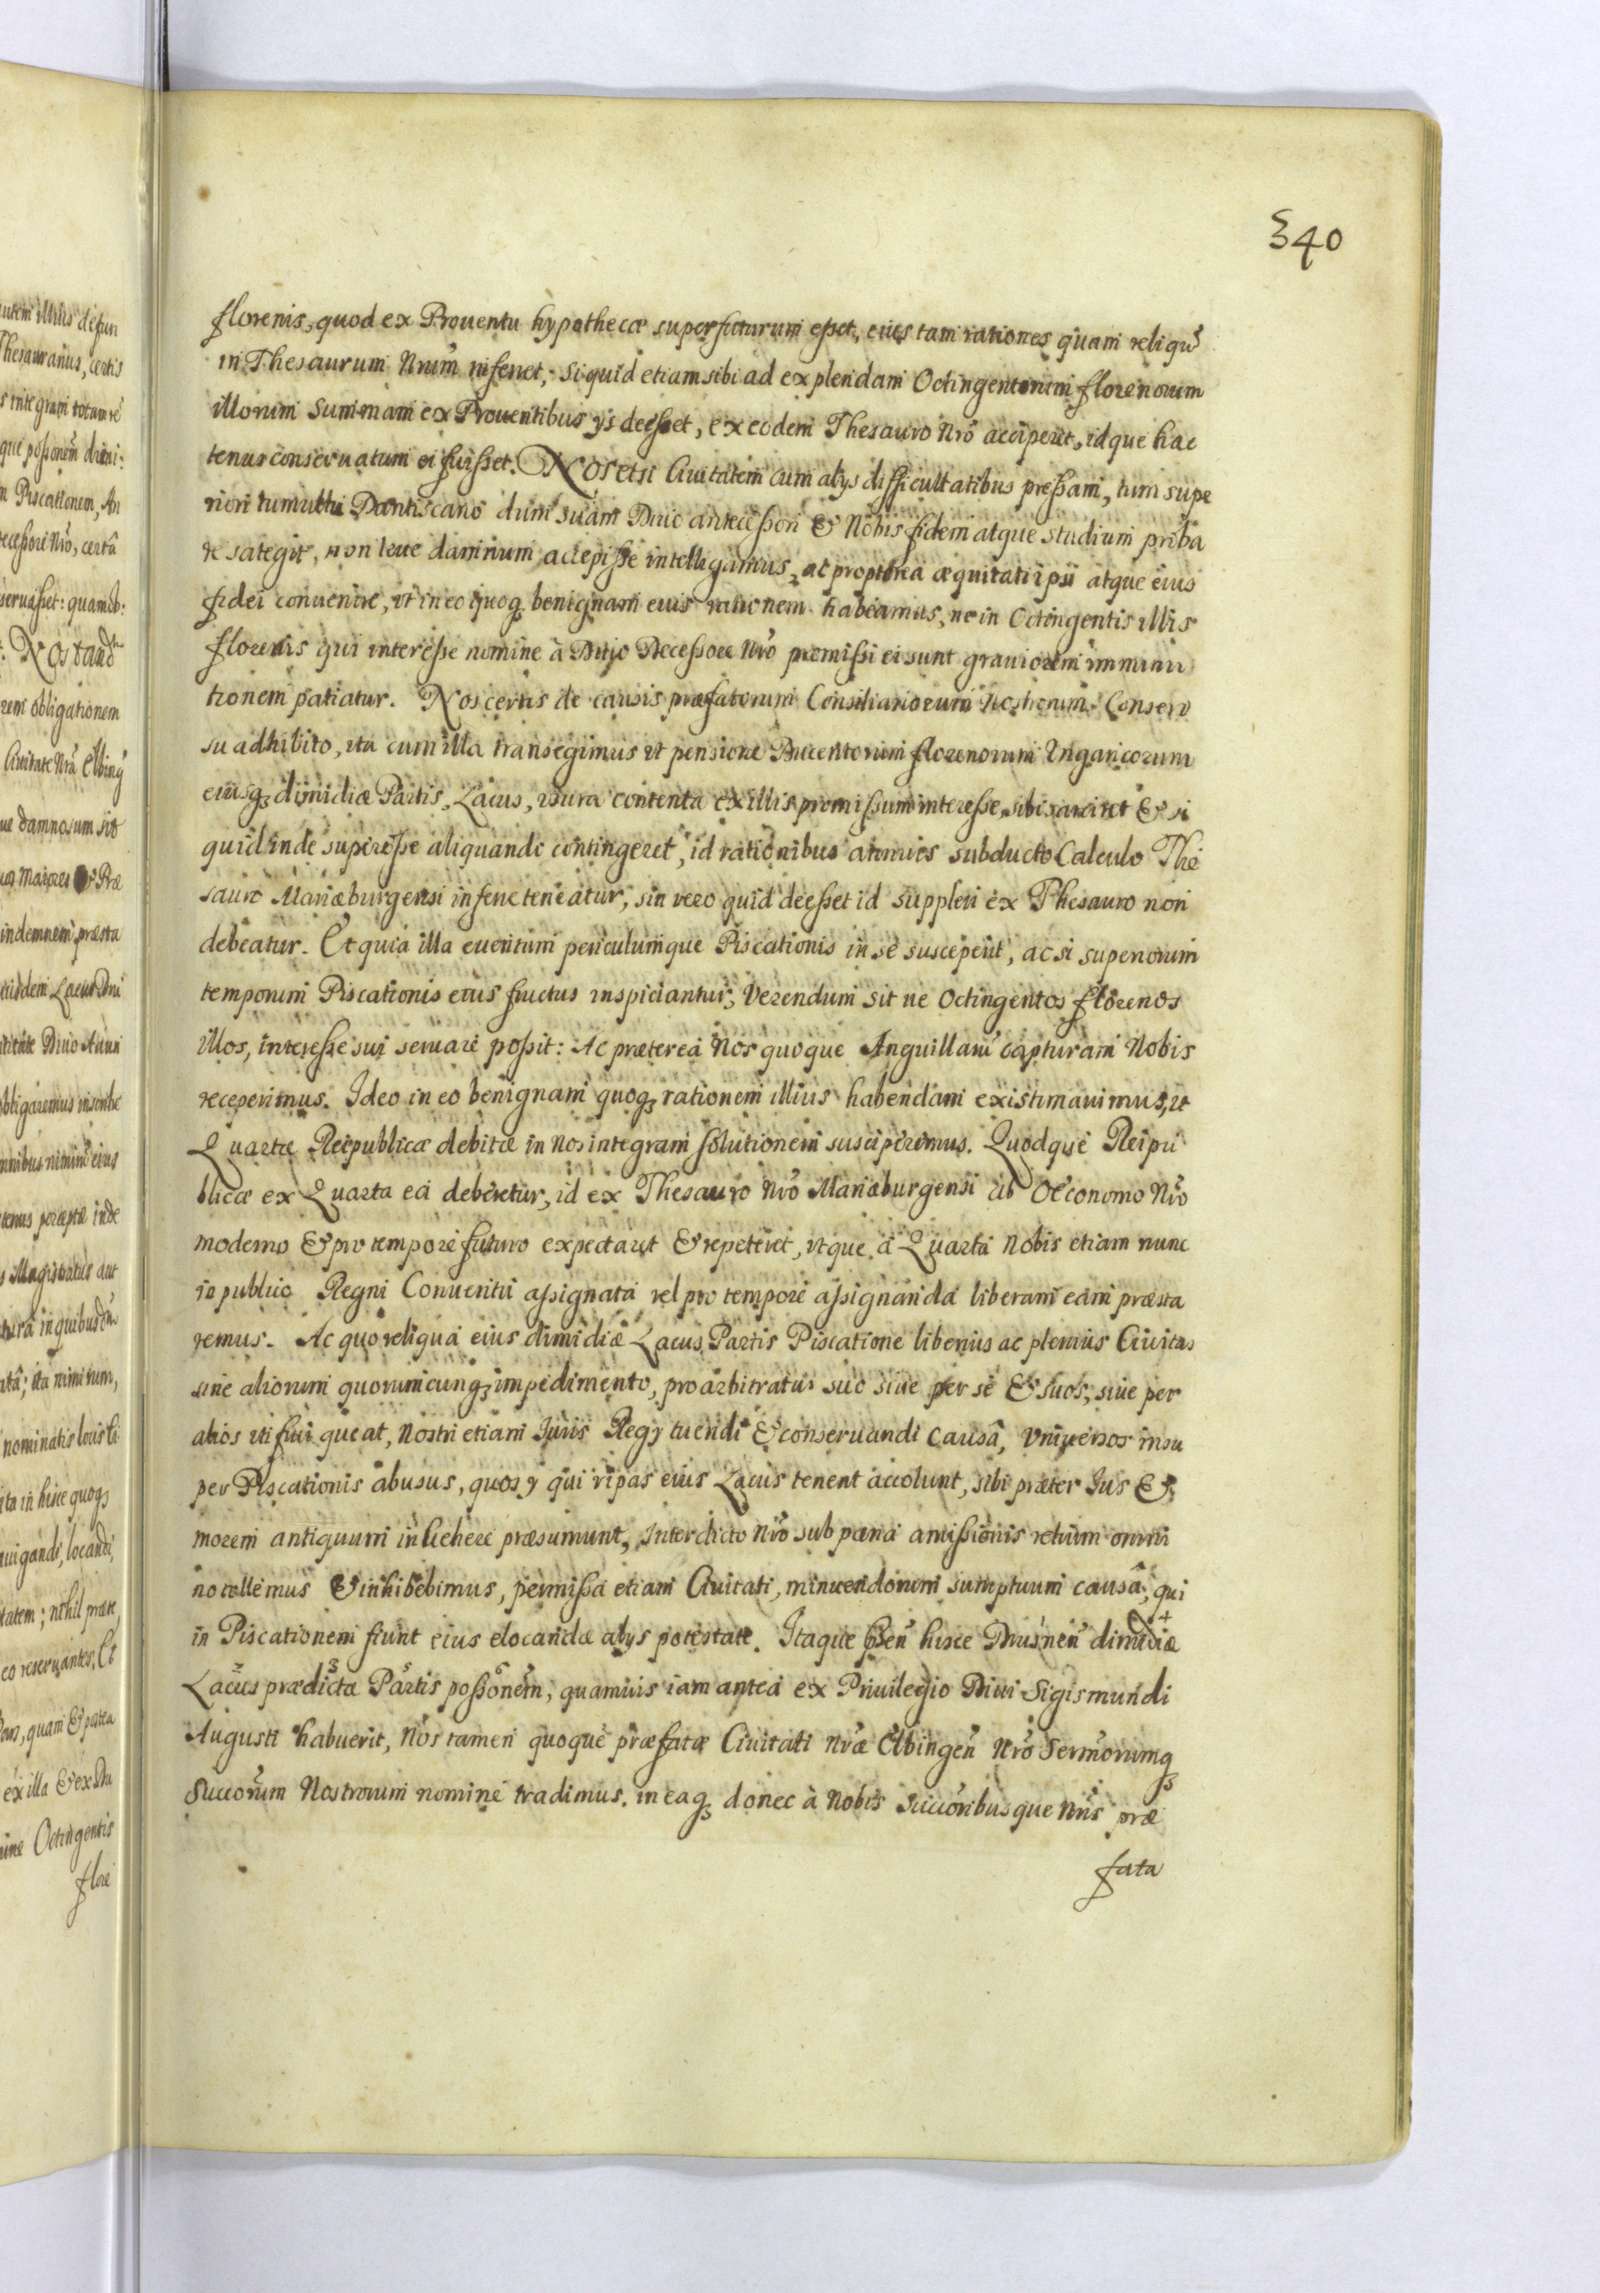 340
florenis, quod ex Prouentu hypothecæ superfuturum esset, eius tam rationes quam reliqũ
in Thesaurum Nrũm inferret, Si quid etiam sibi ad explendam Octingentorum florenorum
illorum Summam ex Prouentibus ys deesset, ex eodem Thesauro Nrõ acciperet, idque hac
tenus conseruatum ei fuisset. Nos etsi Ciuitatem cum alys difficultatibus pressam, tum supe
riori tumultu Dantiscano dum suam Diuo antecessori & Nobis fidem atque studium proba
re sategit, non leue damnum accepisse intelligamus, ac propterea æquitati ipsi atque eius
fidei conuenire, vt in eo quoq; benignam eius rationem habeamus, ne in Octingentis illis
florenis qui interesse nomine à Diuo Decessore Nrõ promissi ei sunt grauiorem imminu
tionem patiatur. Nos certis de causis præfatorum Consiliariorum Nostrorum Consen
su adhibito, ita cum illa transegimus vt pensione Ducentorum florenorum Ungaricorum
eiusq; dimidiæ Partis, Lacus, usura contenta ex illis promissum interesse sibi sarciret & si
quid inde superesse aliquando contingeret, id rationibus a subducto Calculo The
sauro Mariæburgensi inferre teneatur, sin vero quid deesset id suppleri ex Thesauro non
debeatur. Et quia illa euentum periculumque Piscationis in se susceperit, ac si superiorum
temporum Piscationis eius fructus inspiciantur, Verendum sit ne Octingentos florenos
illos, interesse sui seruare possit: Ac præterea Nos quoque Anguillarũ capturam Nobis
receperimus. Ideo in eo benignam quoq; rationem illius habendam existimauimus, ut
Quartæ Reipublicæ debitæ in Nos integram solutionem susciperemus. Quodque Reipu
blicæ ex Quarta ea deberetur, id ex Thesauro Nrõ Mariæburgensi ab Oeconomo Nrõ
moderno & pro tempore futuro expectaret & repeteret, vtque à Quarta Nobis etiam nunc
in publico Regni Conuentu assignata vel pro tempore assignanda liberam eam præsta
remus. Ac quo reliqua eius dimidiæ Lacus Partis Piscatione liberius ac plenius Ciuitas
sine aliorum quorumcunq; impedimento, pro arbitratu suo siue per se & suos, siue per
alios uti frui queat, Nostri etiam Iuris Regy tuendi & conseruandi causâ, Vniuersos insu
per Piscationis abusus, quos y qui ripas eius Lacus tenent accolunt, sibi præter Ius &
morem antiquum inducere præsumunt, Interdicto Nrõ sub pœna amissionis retium omni
no tollemus & inhibebimus, permissa etiam Ciuitati, minuendorum sumptuum causâ, qui
in Piscationem fiunt eius elocandæ alys potestate. Itaque ꝑsen̄ hisce Drusnen̄ dimidiæ
Lacus prædictæ Partis possonem̄, quamuis iam antea ex Priuilegio Diui Sigismundi
Augusti habuerit, Nos tamen quoque præfatæ Ciuitati Nræ Elbingen̄ Nrõ Sermorumq;
Succorum Nostrorum nomine tradimus. in eaq; donec à Nobis Succoribusque Nrĩs præ
fata